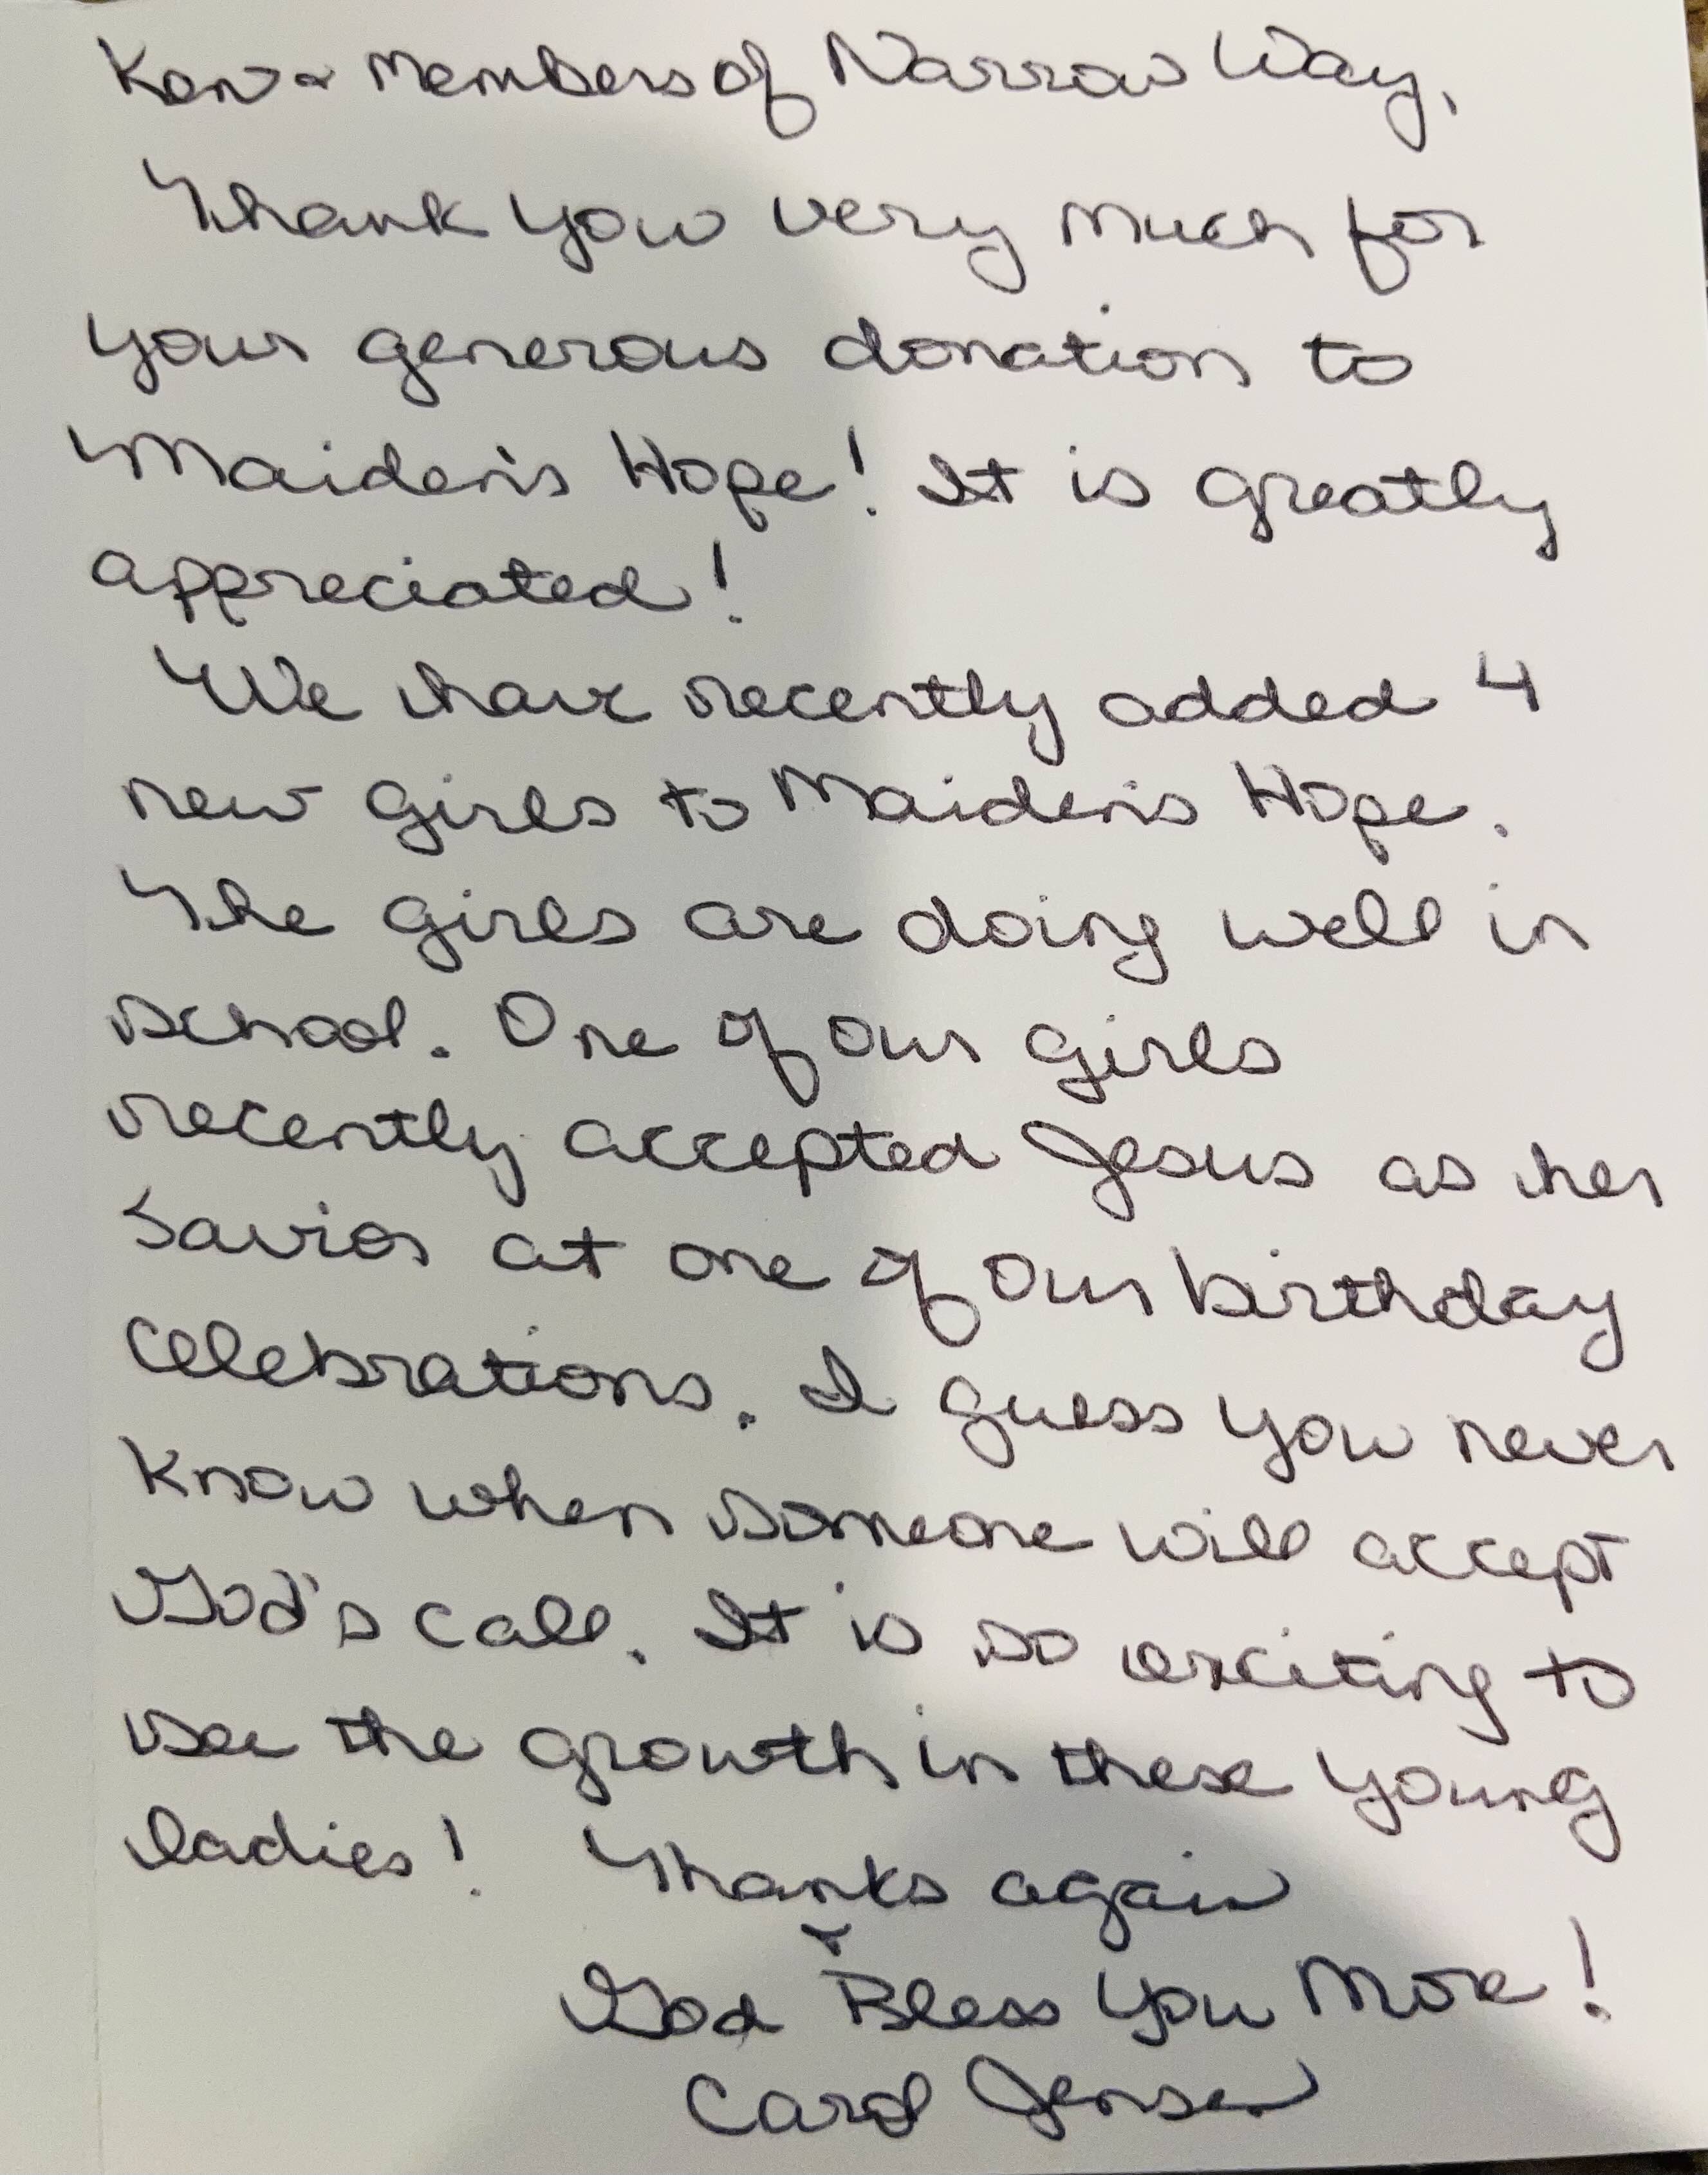 Ken & Members of Narrow Way,
Thank you very much for
your generous donation to
Maiden's Hope! It is greatly
appreciated!
We have recently added 4
new girls to Maiden's Hope.
The girls are doing well in
school. One of our girls
recently accepted Jesus as her
Savior at one of our birthday
celebrations. I guess you never
know when someone will accept
God's call. It is so exciting to
see the growth in these young
ladies! Thanks again
&
God Bless You More!
Carol Jensen